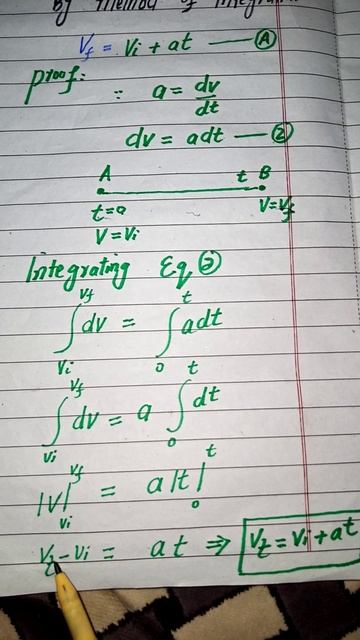 By Method of Integrat
Vf = Vi + at — Ⓐ
Proof:
∵ a = dv/dt
dv = adt — ②
A t B
t=o V=Vf
V=Vi
Integrating Eq ②
∫_{Vi}^{Vf} dv = ∫_{0}^{t} adt
∫_{Vi}^{Vf} dv = a ∫_{0}^{t} dt
|V|_{Vi}^{Vf} = a|t|_{0}^{t}
Vf - Vi = at ⇒ Vf = Vi + at